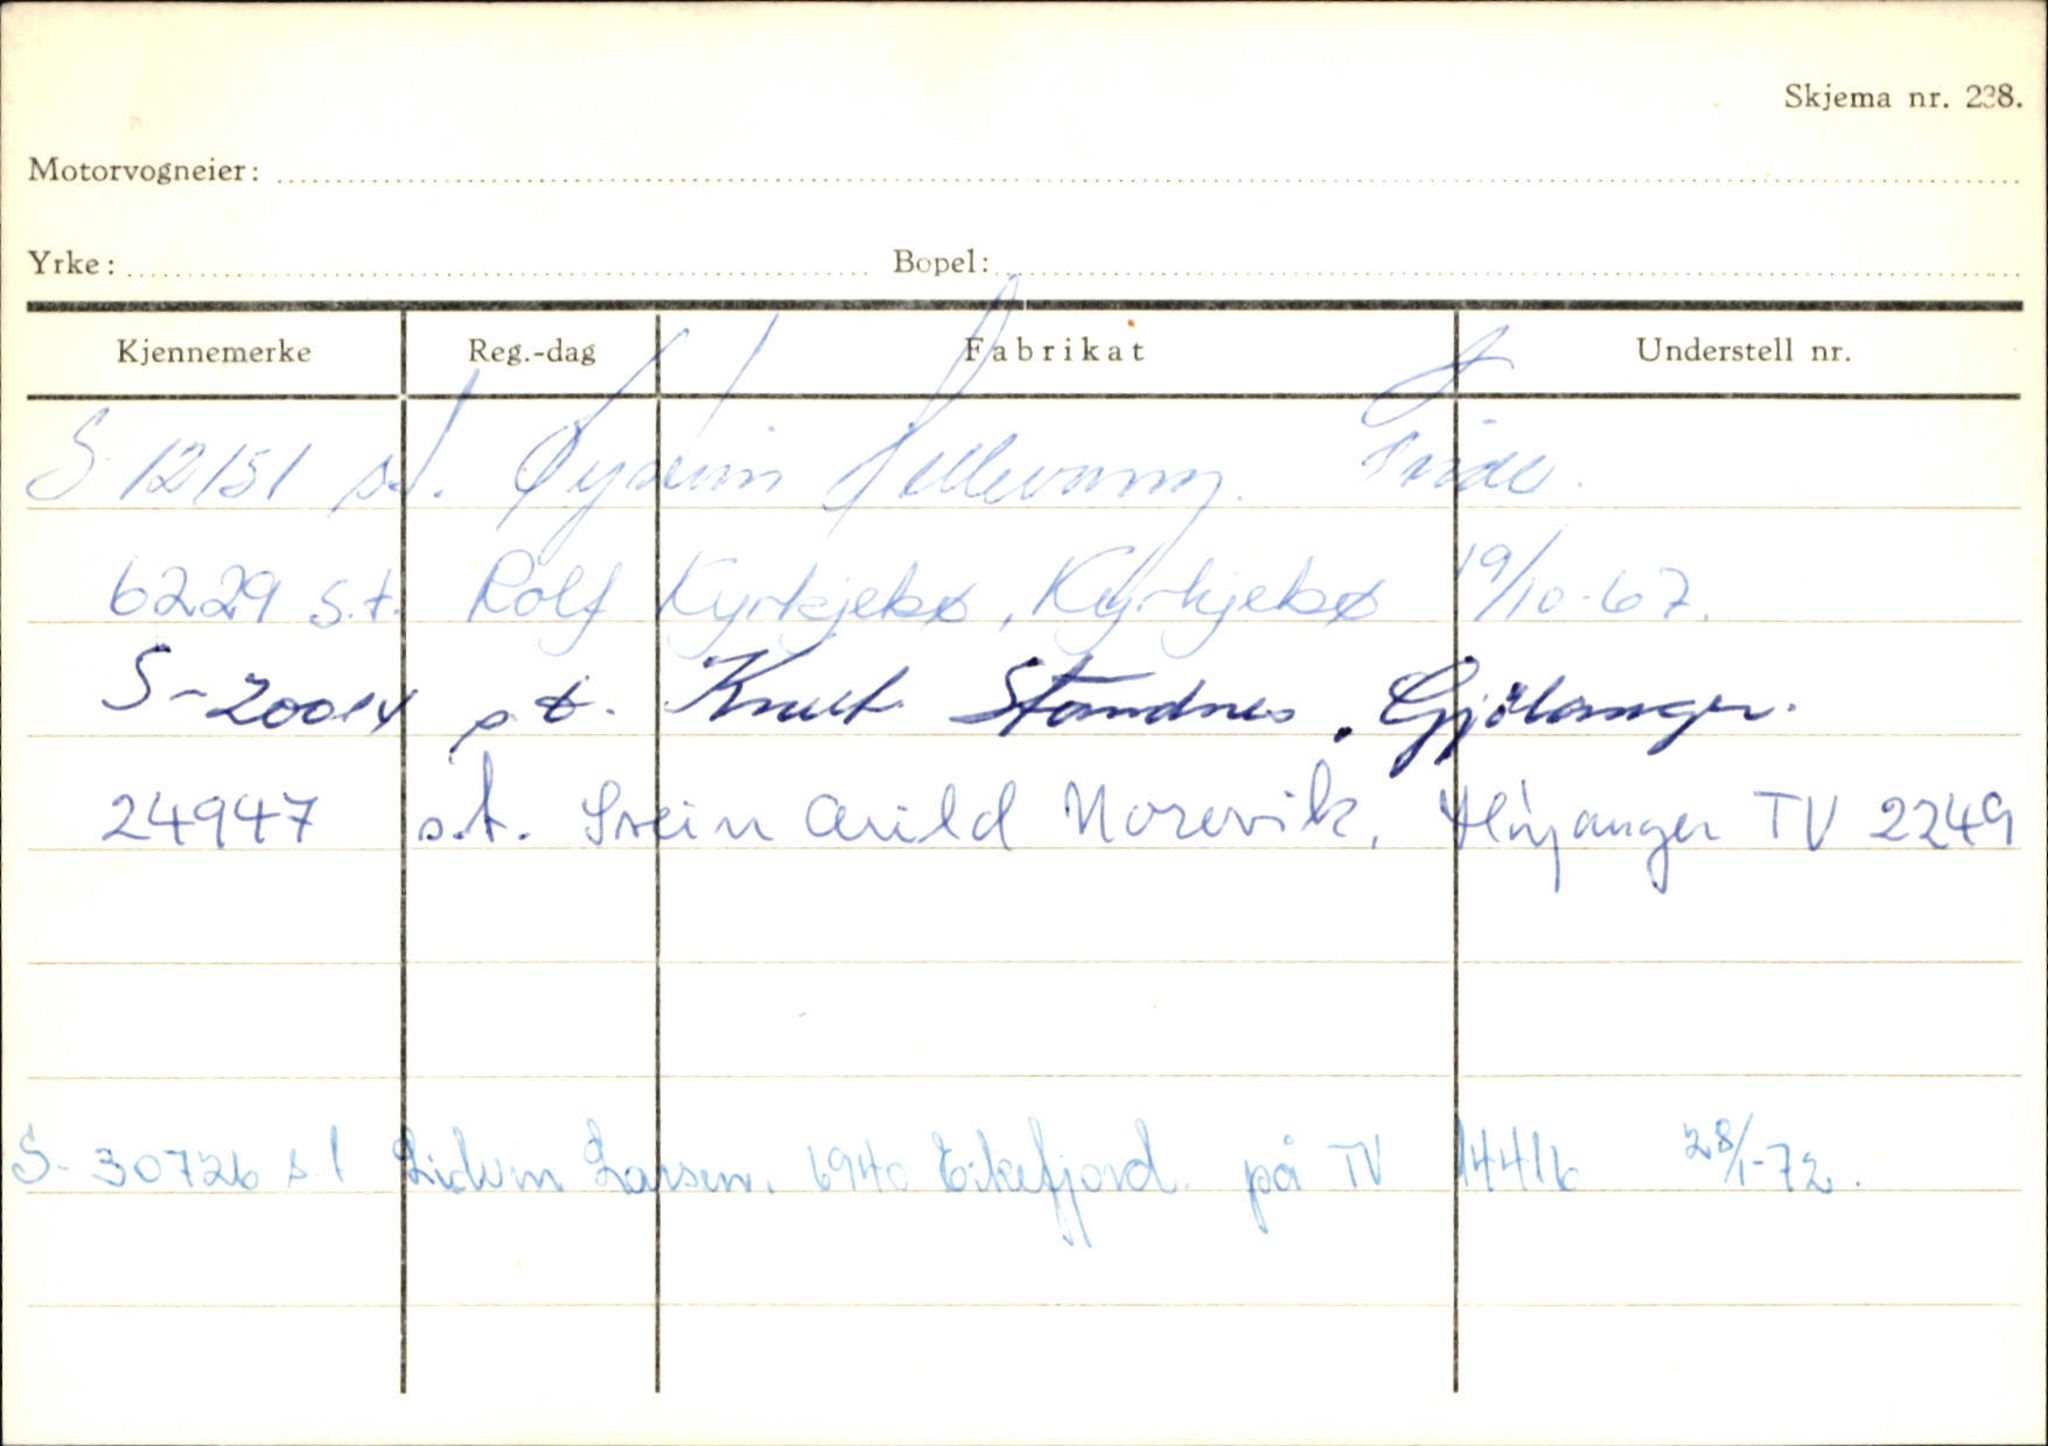 Skjema nr. 238.
Motorvogneier:
Yrke: Bopel:
Kjennemerke Reg.-dag Fabrikat Understell nr.
S 12151 s.t. Øystein
6229 s.t. Rolf Kyrkjebø, Kyrkjebø 19/10-67.
S-20014 s.t. Knut Standnes, Gjölanger.
24947 s.t. Svein Arild Norevik, Høyanger TV 2249
S-30726 s.t Lidvin Larsen. 6940 Eikefjord. på TV 14416 28/1-72.